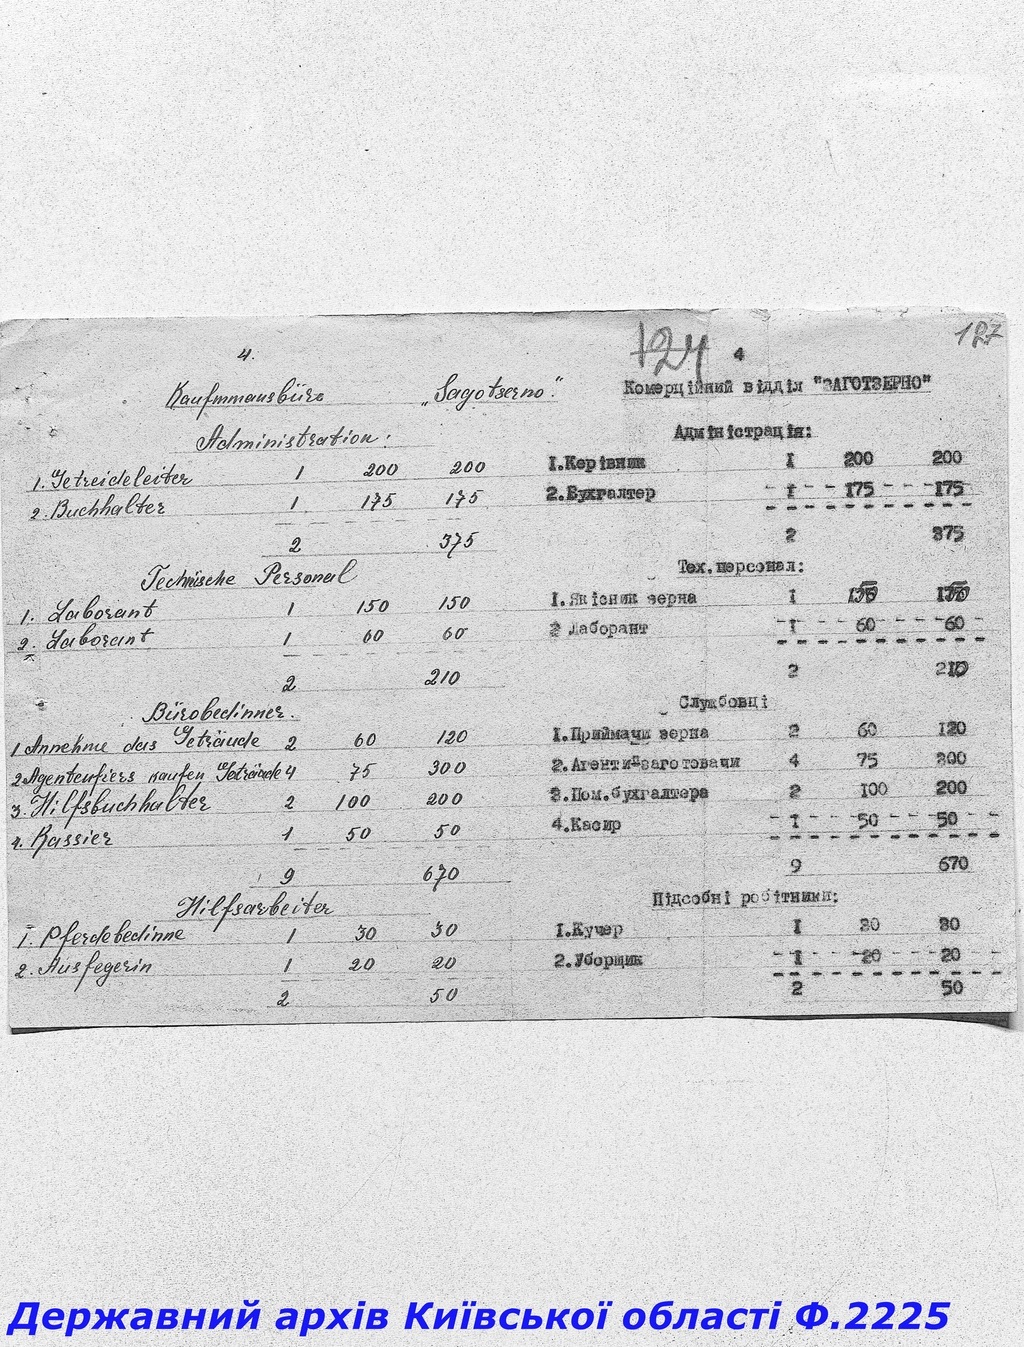 4.
Kaufmmausbüro „Sagotserno."
Administration:
1. Getreideleiter 1 200 200
2. Buchhalter 1 175 175
2 375
Technische Personal
1. Laborant 1 150 150
2. Laborant 1 60 60
2 210
Bürobedinner.
1 Annehme das Geträude 2 60 120
2 Agentenfiers kaufen Geträude 4 75 300
3. Hilfsbuchhalter 2 100 200
4. Kassier 1 50 50
9 670
Hilfsarbeiter
1. Pferdebedinne 1 30 30
2. Ausfegerin 1 20 20
2 50
124 127
4
Комерційний відділ "ЗАГОТЗЕРНО"
Адміністрація:
I.Керівник I 200 200
2.Бухгалтер I 175 175
2 375
Тех.персонал:
I.Якісник зерна I 150 150
2 Лаборант I 60 60
2 210
Службовці
I.Приймачи зерна 2 60 120
2.Агенти-заготовачи 4 75 300
3.Пом.бухгалтера 2 100 200
4.Касир I 50 50
9 670
Підсобні робітники:
I.Кучер I 30 30
2.Уборщик I 20 20
2 50
Державний архів Київської області Ф.2225